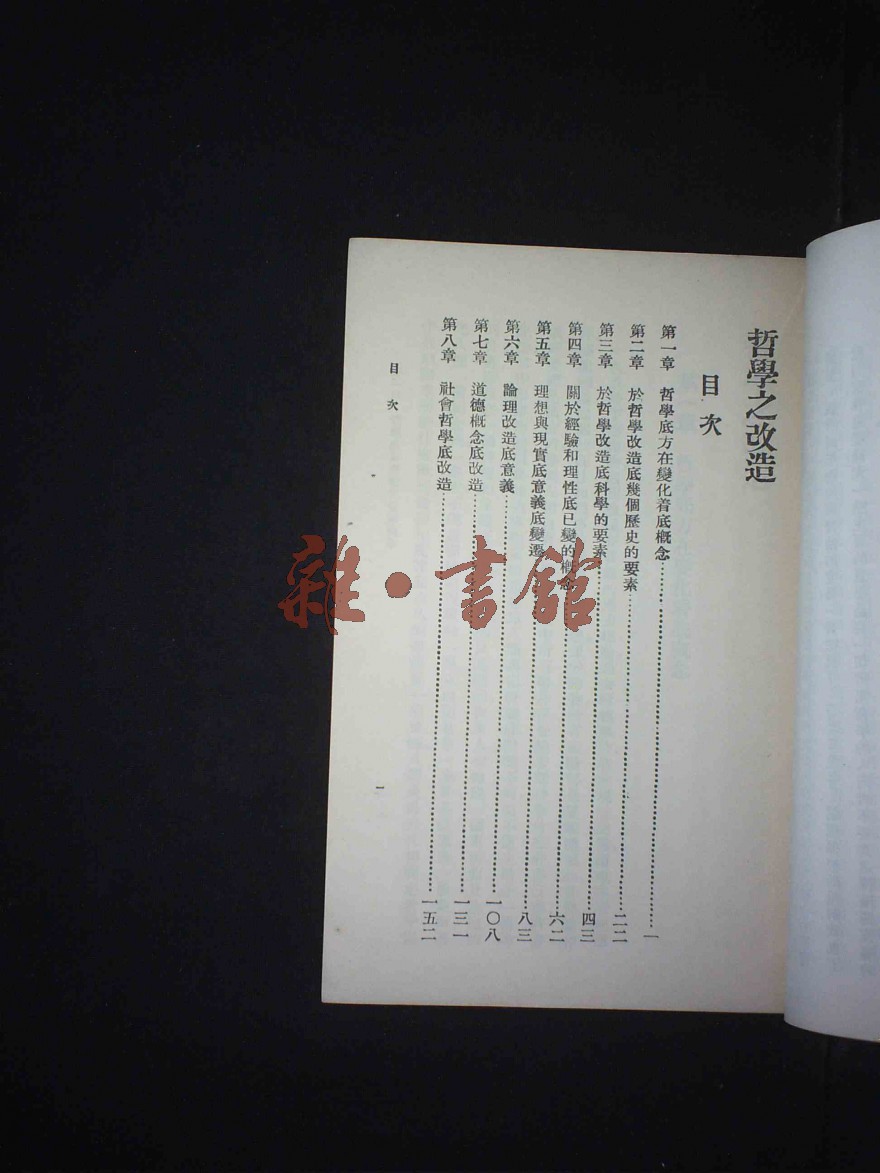 哲學之改造
目次
第一章 哲學底方在變化着底概念 一
第二章 於哲學改造底幾個歷史的要素 二二
第三章 於哲學改造底科學的要素 四三
第四章 關於經驗和理性底已變的概念 六二
第五章 理想與現實底意義底變遷 八三
第六章 論理改造底意義 一〇八
第七章 道德概念底改造 一三一
第八章 社會哲學底改造 一五二
目次
一
雜·書館